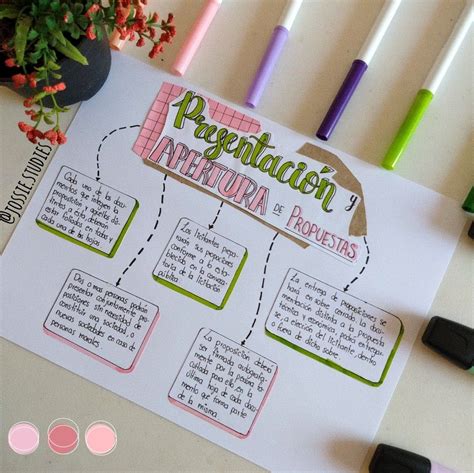 @JOSIE.STUDIES
Presentación y
APERTURA DE PROPUESTAS
Cada uno de los documentos
que integren la
proposición y aquellos distintos
a éste, deberán
estar foliados en todas y
cada una de las hojas
Los licitantes prepararán
sus proposiciones
conforme a lo establecido
en la convocatoria
de la licitación
pública
La entrega de proposiciones se
hará en sobre cerrado, la documentación
distinta a la propuesta
técnica y económica podrá entregarse,
a elección del licitante, dentro
o fuera de dicho sobre.
Dos o mas personas podrán
presentar conjuntamente
proposiciones sin necesidad de
constituir una sociedad, o
nueva sociedades en caso de
personas morales.
La proposición deberá
ser firmada autógrafamente
por la persona facultada
para ello en la
última hoja de cada documento
que forme parte
de la misma.